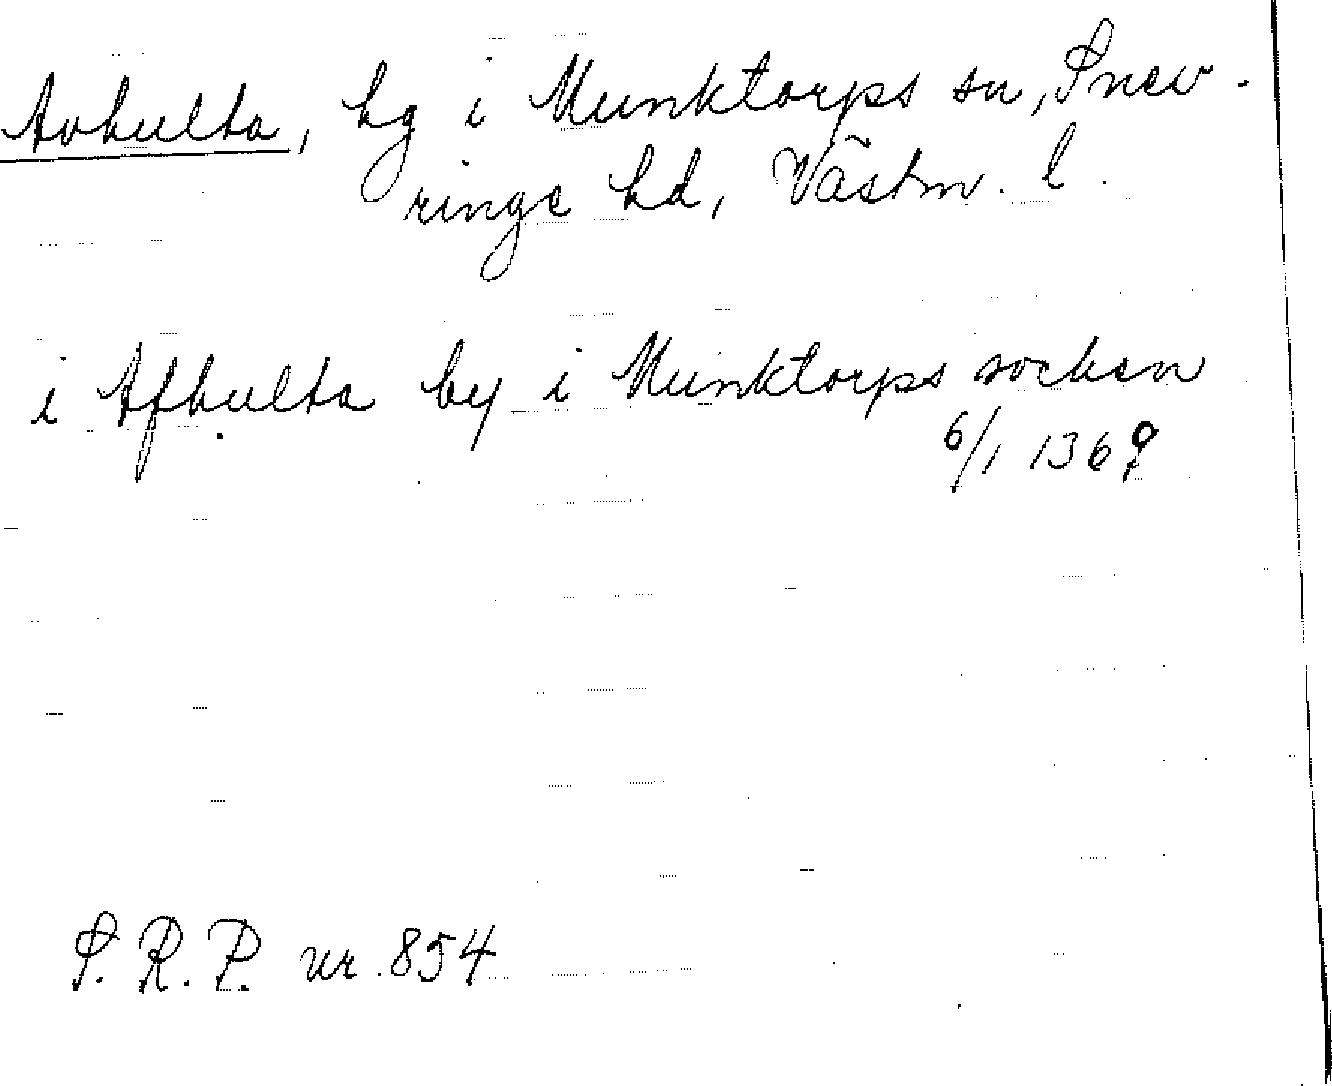 Avhulta, hg i Munktorps sn, Snev-
ringe hd, Västm. l.
i Afhulta by i Munktorps socken
6/1 1369
S. R. P. nr. 854